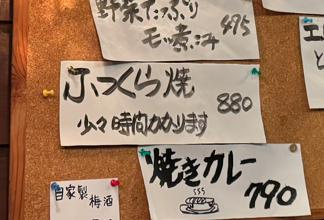 野菜たっぷり
モツ煮込み 495
ふっくら焼 880
少々時間かかります
焼きカレー
790
自家製
梅酒